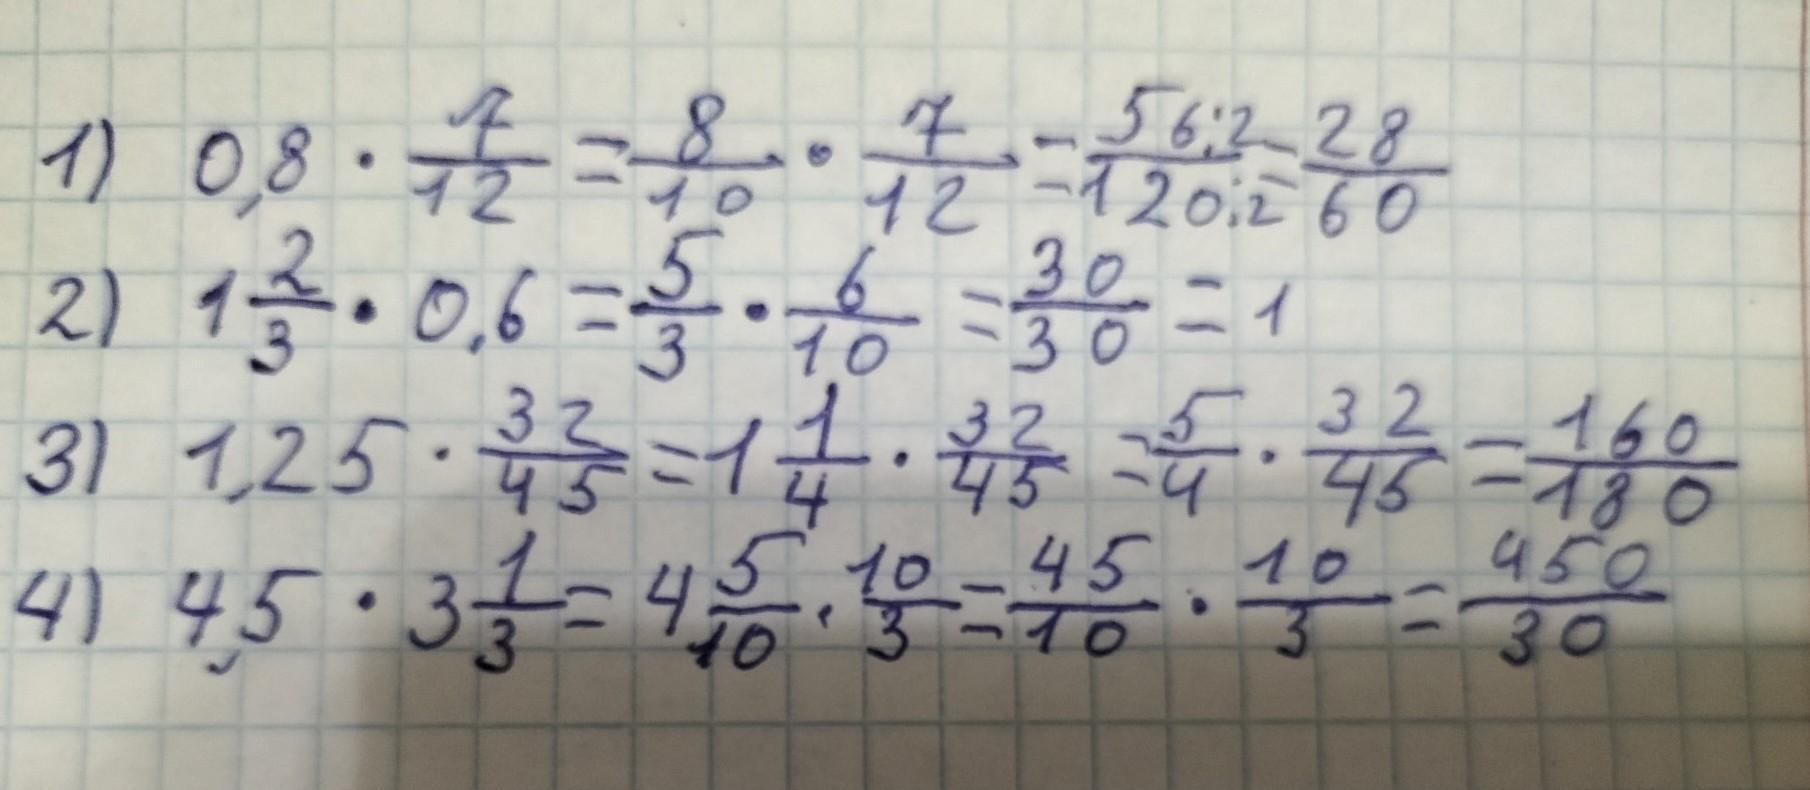 1) 0,8 · 7/12 = 8/10 · 7/12 = 56:2/120:2 = 28/60
2) 1 2/3 · 0,6 = 5/3 · 6/10 = 30/30 = 1
3) 1,25 · 32/45 = 1 1/4 · 32/45 = 5/4 · 32/45 = 160/180
4) 4,5 · 3 1/3 = 4 5/10 · 10/3 = 45/10 · 10/3 = 450/30